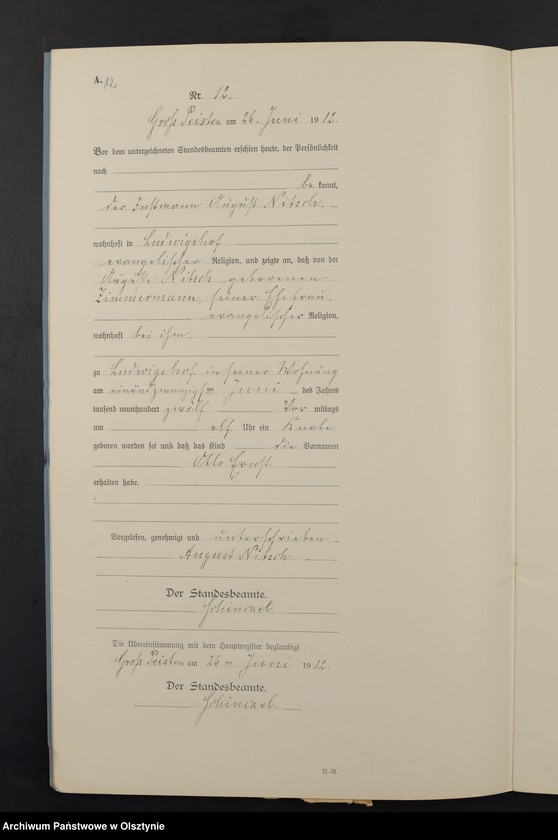 A. 12
Nr. 12.
Groß Peisten am 26. Juni 1912.
Vor dem unterzeichneten Standesbeamten erschien heute, der Persönlichkeit
nach
be kannt,
der Instmann August Nitsch.
wohnhaft in Ludwigshof
evangelischer Religion, und zeigte an, daß von der
Auguste Nitsch geborenen
Zimmermann, seiner Ehefrau,
evangelischer Religion,
wohnhaft bei ihm.
zu Ludwigshof in seiner Wohnung
am einundzwanzigsten Juni des Jahres
tausend neunhundert zwölf Vor mittags
um elf Uhr ein Knabe
geboren worden sei und daß das Kind die Vornamen
Otto Ernst
erhalten habe.
Vorgelesen, genehmigt und unterschrieben
August Nitsch
Der Standesbeamte.
Die Übereinstimmung mit dem Hauptregister beglaubigt
Groß Peisten am 26ten Juni 1912.
Der Standesbeamte.
N.-R.
Archiwum Państwowe w Olsztynie